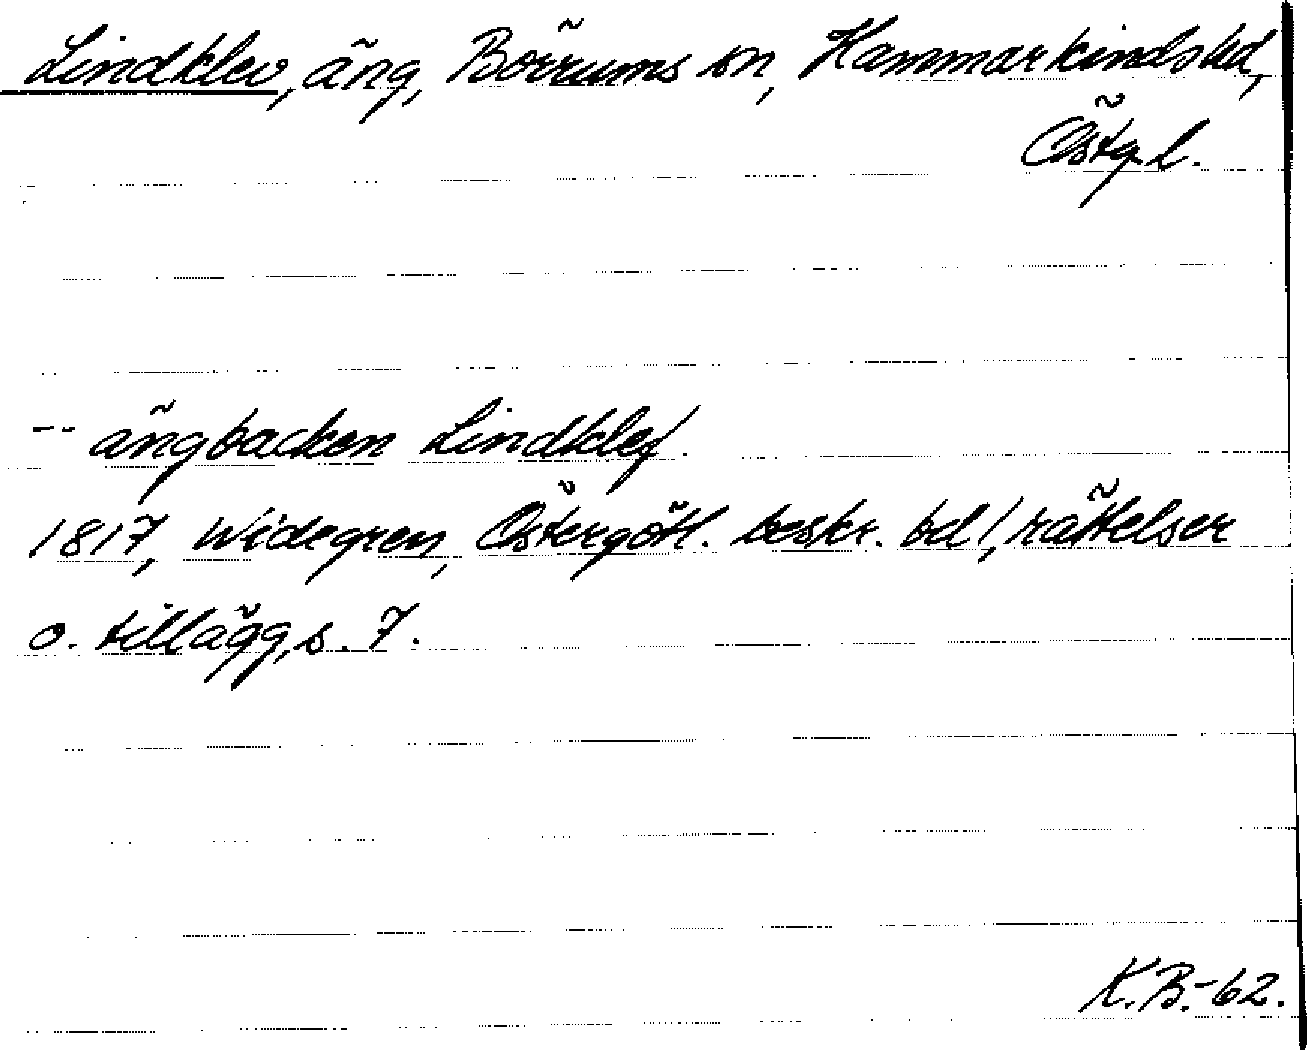 Lindklev, äng, Börrums sn, Hammarkinds hd,
Östg. l.
-- ängbacken Lindklef.
1817, Widegren, Östergötl. beskr. bd I, rättelser
o. tillägg, s. 7.
K.B.-62.